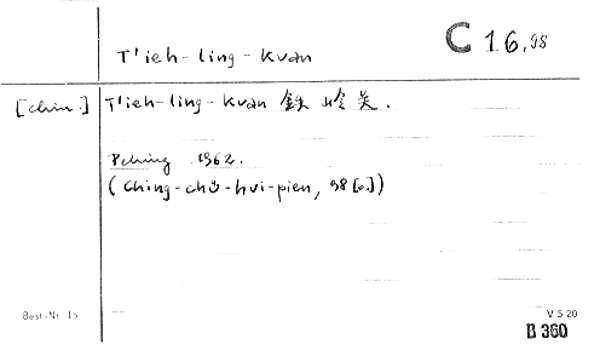 C 16,98
T'ieh-ling-kuan
[chin.] T'ieh-ling-kuan 鉄岭关.
Peking 1962.
(Ching-chü-hui-pien, 98[.])
Best.-Nr. 15
V 5 20
B 360